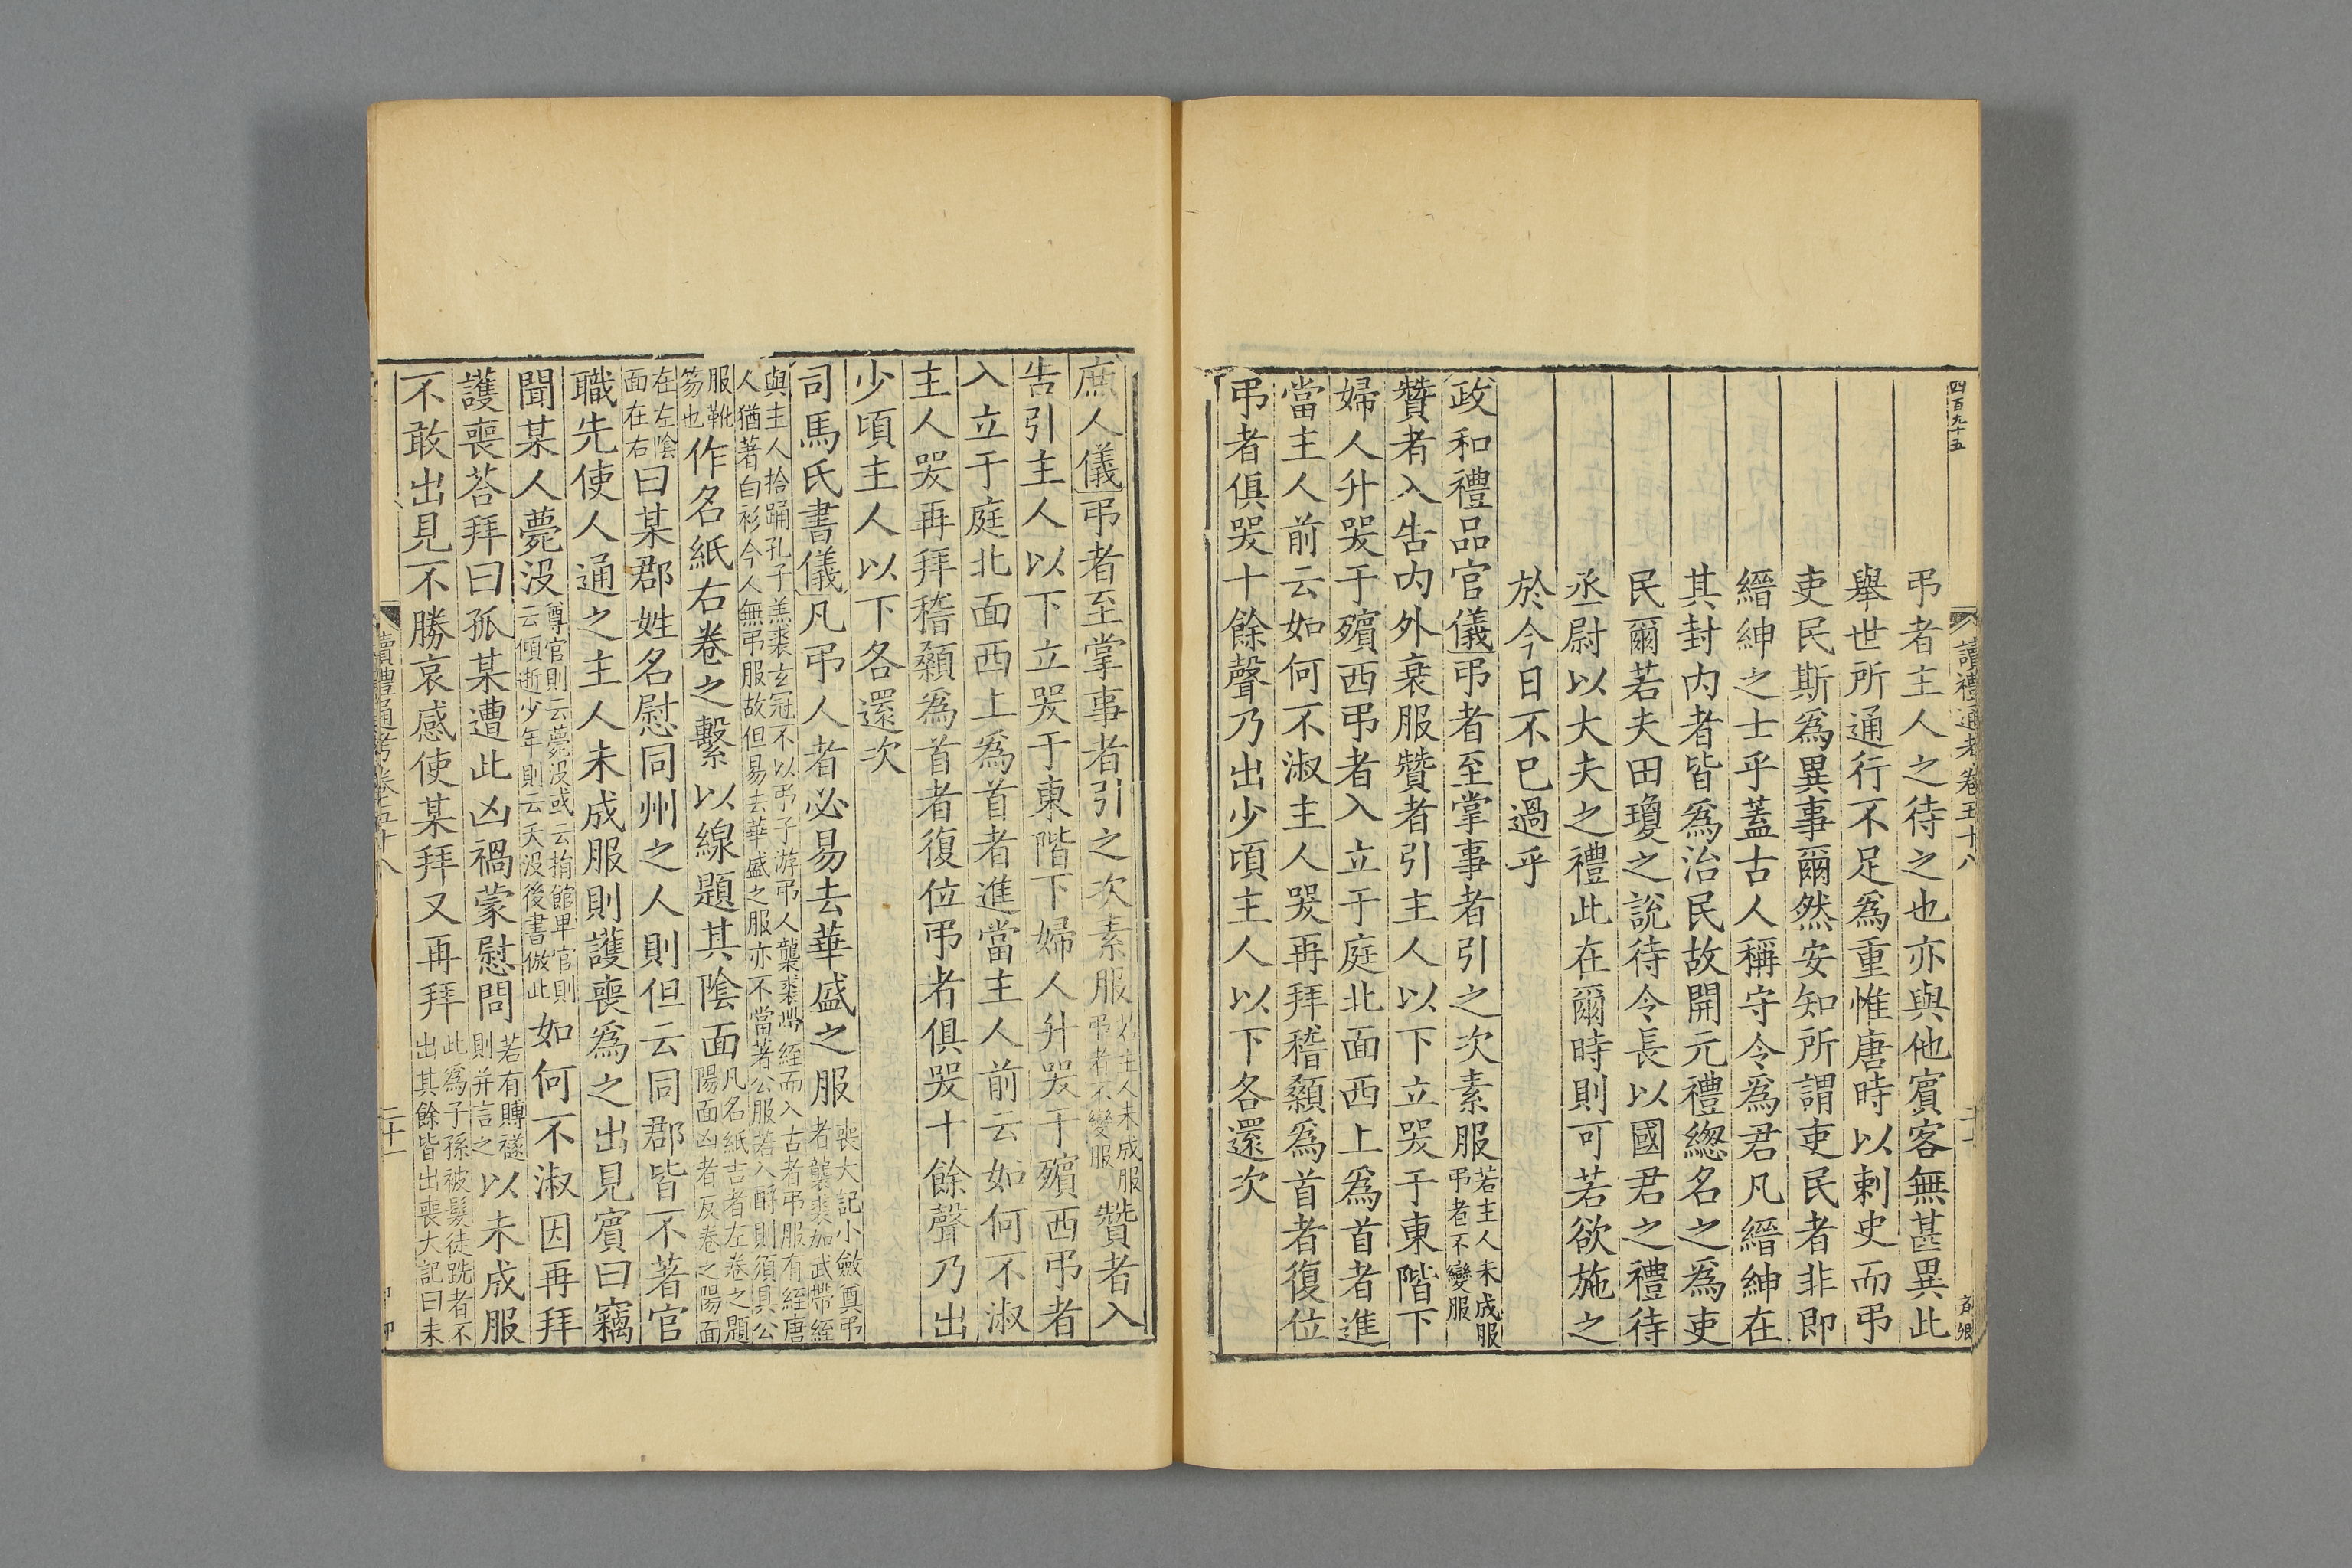 四百九十五
讀禮通考卷五十八
弔者主人之待之也亦與他賓客無甚異此
舉世所通行不足爲重惟唐時以刺史而弔
吏民斯爲異事爾然安知所謂吏民者非即
縉紳之士乎蓋古人稱守令爲君凡縉紳在
其封内者皆爲治民故開元禮緫名之爲吏
民爾若夫田瓊之說待令長以國君之禮待
丞尉以大夫之禮此在爾時則可若欲施之
於今日不已過乎
政和禮品官儀弔者至掌事者引之次素服若主人未成服弔者不變服
贊者入告内外衰服贊者引主人以下立哭于東階下
婦人升哭于殯西弔者入立于庭北面西上爲首者進
當主人前云如何不淑主人哭再拜稽顙爲首者復位
弔者俱哭十餘聲乃出少頃主人以下各還次
庶人儀弔者至掌事者引之次素服若主人未成服弔者不變服贊者入
告引主人以下立哭于東階下婦人升哭于殯西弔者
入立于庭北面西上爲首者進當主人前云如何不淑
主人哭再拜稽顙爲首者復位弔者俱哭十餘聲乃出
少頃主人以下各還次
司馬氏書儀凡弔人者必易去華盛之服喪大記小斂奠弔者襲裘加武帶絰
與主人拾踊孔子羔裘玄冠不以弔子游弔人襲裘帶絰而入古者弔服有絰唐
人猶著白衫今人無弔服故但易去華盛之服亦不當著公服若入酹則須具公
服靴笏也作名紙右卷之繫以線題其陰面凡名紙吉者左卷之題陽面凶者反卷之陽面
在左陰面在右曰某郡姓名慰同州之人則但云同郡皆不著官
職先使人通之主人未成服則護喪爲之出見賓曰竊
聞某人薨没尊官則云薨没或云捐館卑官則云傾逝少年則云夭没後書倣此如何不淑因再拜
護喪荅拜曰孤某遭此凶禍蒙慰問若有賻襚則并言之以未成服
不敢出見不勝哀感使某拜又再拜此爲子孫被髮徒跣者不出其餘皆出喪大記曰未
讀禮通考卷五十八
二十一